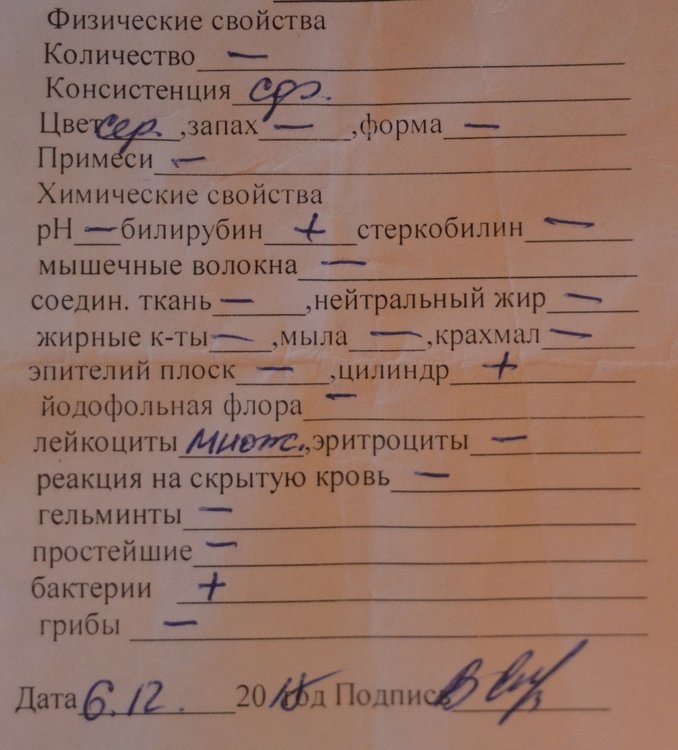 Физические свойства
Количество —
Консистенция
Цвет сер. , запах — , форма —
Примеси —
Химические свойства
pH — билирубин + стеркобилин —
мышечные волокна —
соедин. ткань — ,нейтральный жир —
жирные к-ты — ,мыла — ,крахмал —
эпителий плоск — ,цилиндр +
йодофольная флора —
лейкоциты множ. ,эритроциты —
реакция на скрытую кровь —
гельминты —
простейшие —
бактерии +
грибы —
Дата 6.12. 2015 год Подпись